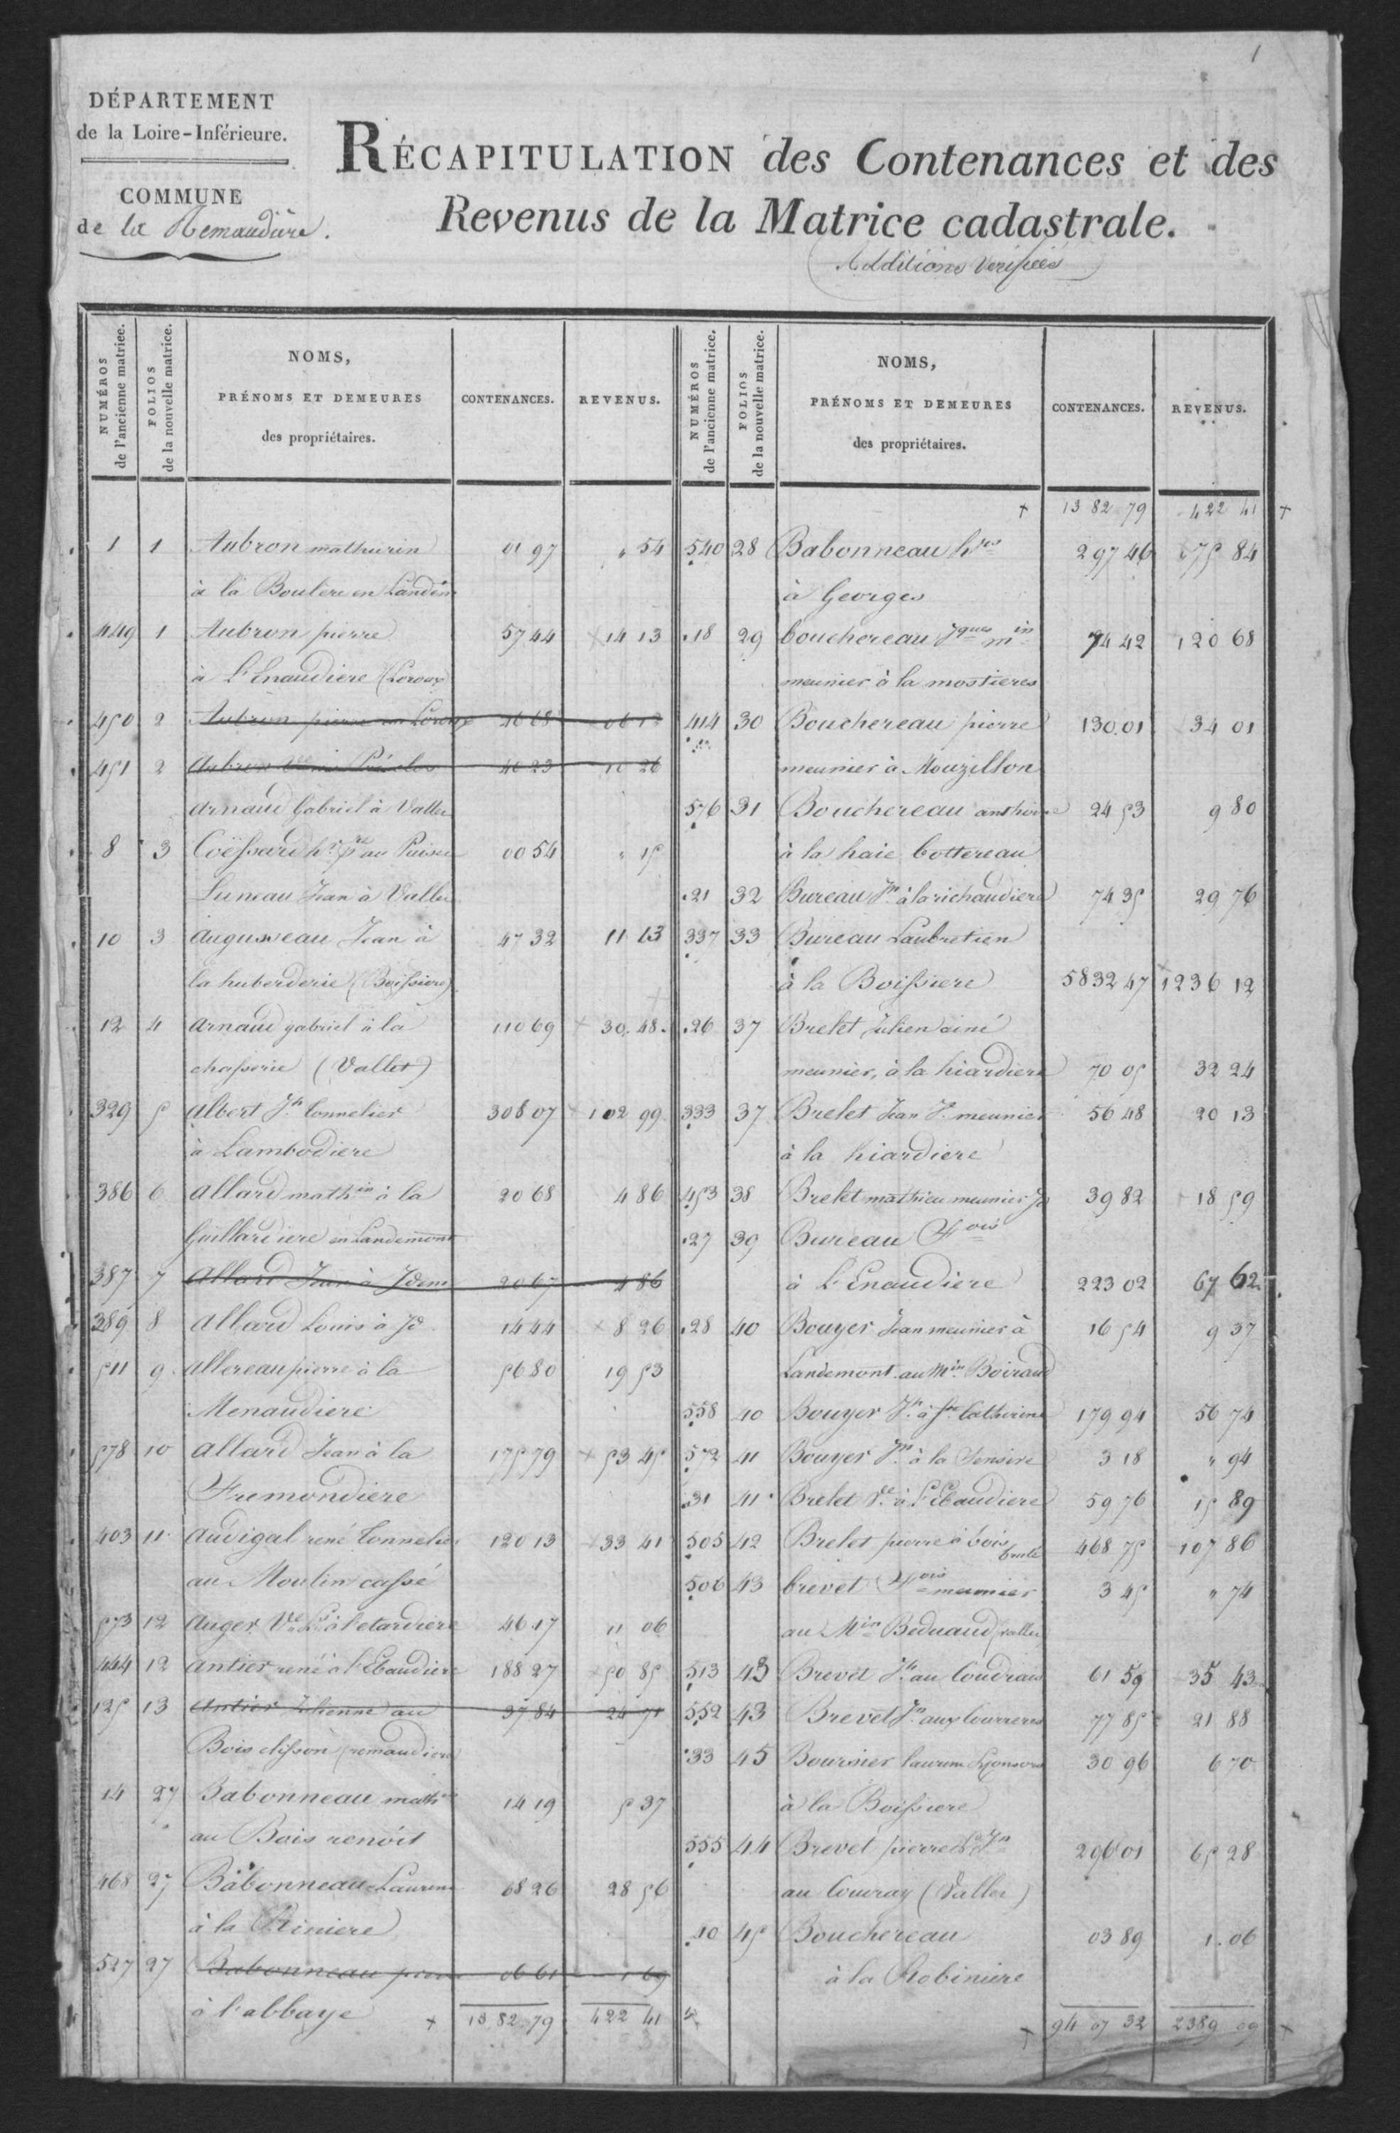 1
DÉPARTEMENT
de la Loire-Inférieure.
COMMUNE
de la Remaudière.
RÉCAPITULATION des Contenances et des
Revenus de la Matrice cadastrale.
Additions Verifiées
NUMÉROS de l'ancienne matrice. FOLIOS de la nouvelle matrice. NOMS, PRÉNOMS ET DEMEURES des propriétaires. CONTENANCES. REVENUS.
1 1 Aubron mathurin 01 97 " 54
à la Boulere en Landem
449 1 Aubron pierre 57 44 14 13
à L'Enaudiere (Loroux)
450 2 Aubron pierre au Loroux 26 68 06 12
451 2 Aubron 40 23 10 26
arnaud Gabriel à Vallet
8 3 Coëssard hrs pre au Puiset 00 54 " 15
Luneau Jean à Vallet
10 3 augusseau Jean à 47 32 11 13
la huberderie (Boissiere)
12 4 arnaud gabriel à la 110 69 30 48
chasserie (Vallet)
329 5 albert Jn tonnelier 308 07 102 99
à Lambodiere
386 6 allard mathin à la 20 68 4 86
Guillardiere en Landemont
387 7 allard Jean à Idem 20 67 4 86
389 8 allard Louis à Id 14 44 8 26
511 9 allereau pierre à la 56 80 19 53
Menaudiere
578 10 allard Jean à la 175 79 53 45
Fremondiere
403 11 audigal rené tonnelier 120 13 33 41
au Moulin cassé
573 12 auger Ve Ls à letardiere 46 17 11 06
444 12 antier rené à l'Ebaudiere 188 27 50 85
125 13 antier Etienne au 37 84 24 71
Bois clisson (remaudiere)
14 27 Babonneau math 14 19 5 37
au Bois renoit
468 27 Babonneau Laurent 68 26 28 56
à la Riniere
527 27 Babonneau pierre 06 61 1 69
à l'abbaye + 13 82 79 422 41
NUMÉROS de l'ancienne matrice. FOLIOS de la nouvelle matrice. NOMS, PRÉNOMS ET DEMEURES des propriétaires. CONTENANCES. REVENUS.
+ 13 82 79 422 41 +
540 28 Babonneau hrs 297 46 175 84
à Georges
18 29 bouchereau Jques min 74 42 120 68
meunier à la mostieres
414 30 Bouchereau pierre 130 01 34 01
meunier à Mouzillon
576 31 Bouchereau anthoine 24 53 9 80
à la haie bottereau
21 32 Bureau Jn à la richaudiere 74 35 29 76
337 33 Bureau Laubretien
à la Boissiere 5832 47 1236 12
26 37 Brelet Julien ainé
meunier, à la hiardiere 70 05 32 24
333 37 Brelet Jean Id meunier 56 48 20 13
à la hiardiere
453 38 Brelet mathieu meunier Id 39 82 18 59
27 39 Bureau Fois
à L'Enaudiere 223 02 67 62
28 40 Bouyer Jean meunier à 16 54 9 37
Landemont au Min Boiraud
558 40 Bouyer Jn à Ste Catherine 179 94 56 74
572 41 Bouyer Jn à la Tensive 3 18 " 94
31 41 Brelet Ve à L'Ebaudiere 59 76 15 89
505 42 Brelet pierre à bois brulé 468 75 107 86
506 43 brevet Fois meunier 3 45 " 74
au Min Beduaud (vallet
513 43 Brevet Jn au Coudrais 61 59 35 43
552 43 Brevet Jn aux Courreres 77 85 21 88
33 45 Boursier laurent 30 96 6 70
à la Boissiere
555 44 Brevet pierre 296 01 65 28
au Couray (Vallet)
10 45 Bouchereau 03 89 1 06
à la Robiniere
+ 94 07 32 2389 09 +